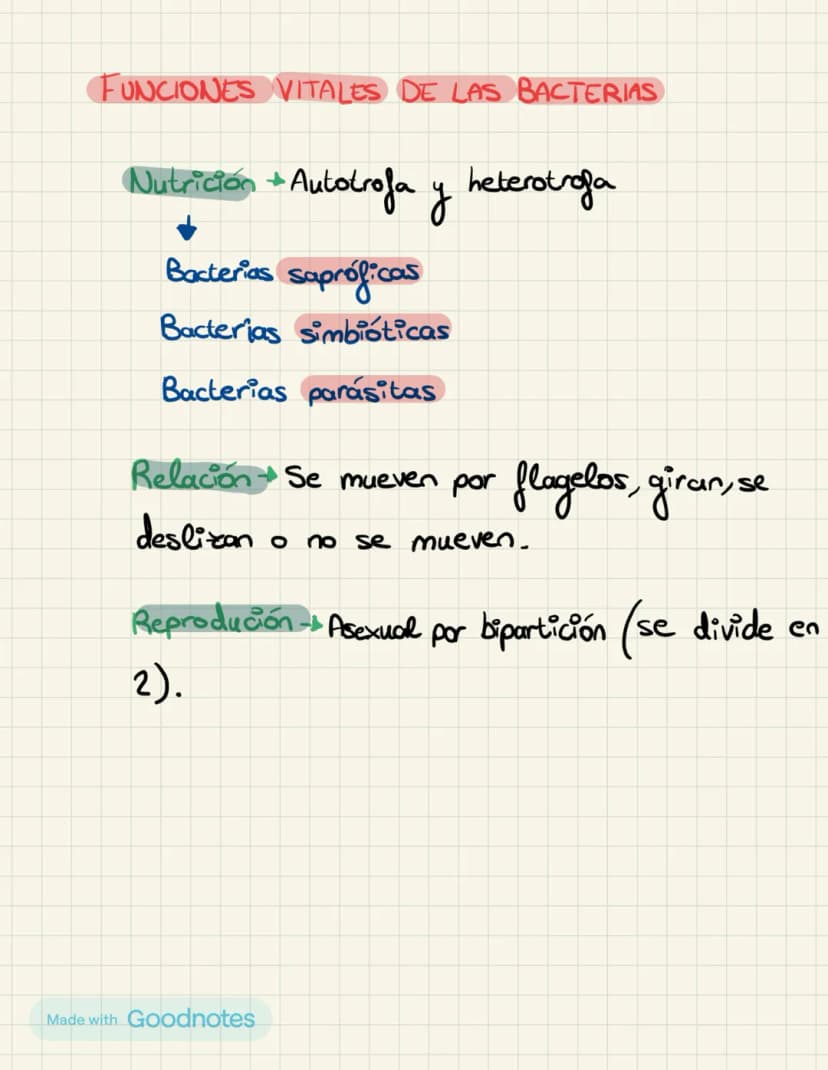 FUNCIONES VITALES DE LAS BACTERIAS
Nutrición → Autotrofa y heterotrofa
↓
Bacterias sapróficas
Bacterias simbióticas
Bacterias parásitas
Relación → Se mueven por flagelos, giran, se
deslizan o no se mueven.
Reprodución → Asexual por bipartición (se divide en
2).
Made with Goodnotes